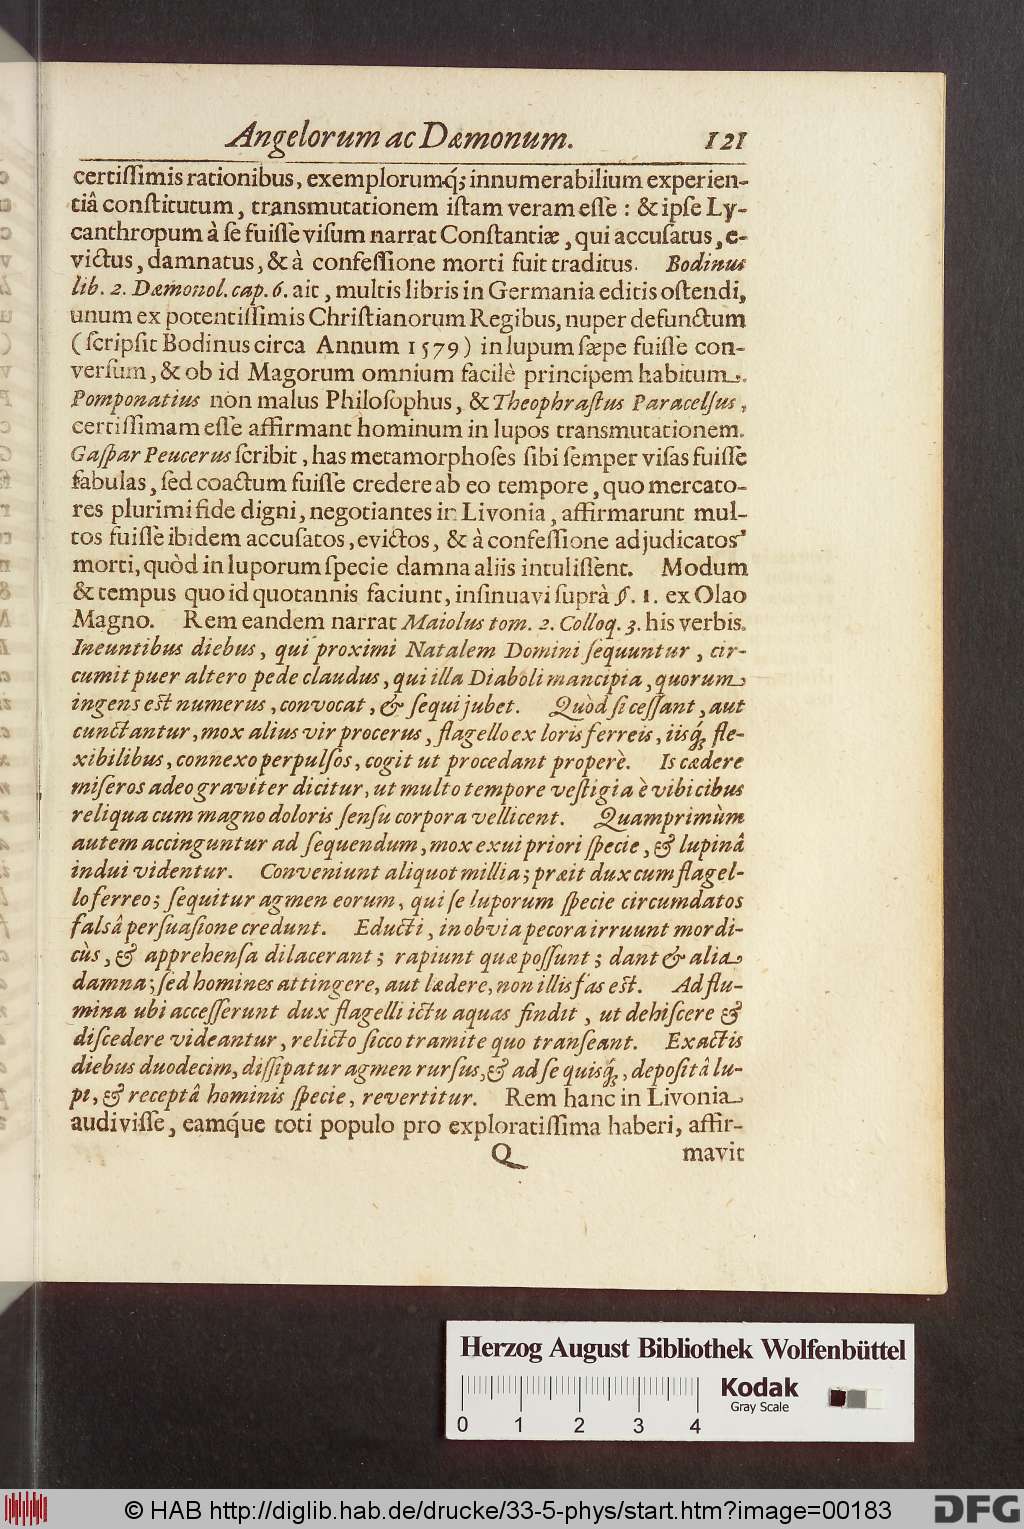 Angelorum ac Dæmonum. 121
certiſſimis rationibus, exemplorumq́; innumerabilium experien-
tiâ conſtitutum, transmutationem iſtam veram eſſe : & ipſe Ly-
canthropum à ſe fuiſſe viſum narrat Conſtantiæ, qui accuſatus, e-
victus, damnatus, & à confeſſione morti fuit traditus. Bodinus
lib. 2. Dæmonol. cap. 6. ait, multis libris in Germania editis oſtendi,
unum ex potentiſſimis Chriſtianorum Regibus, nuper defunctum
(ſcripſit Bodinus circa Annum 1579) in lupum ſæpe fuiſſe con-
verſum, & ob id Magorum omnium facilè principem habitum.
Pomponatius non malus Philoſophus, & Theophraſtus Paracelſus,
certiſſimam eſſe affirmant hominum in lupos transmutationem.
Gaſpar Peucerus ſcribit, has metamorphoſes ſibi ſemper viſas fuiſſe
fabulas, ſed coactum fuiſſe credere ab eo tempore, quo mercato-
res plurimi fide digni, negotiantes in Livonia, affirmarunt mul-
tos fuiſſe ibidem accuſatos, evictos, & à confeſſione adjudicatos
morti, quòd in luporum ſpecie damna aliis intuliſſent. Modum
& tempus quo id quotannis faciunt, inſinuavi ſuprà §. 1. ex Olao
Magno. Rem eandem narrat Maiolus tom. 2. Colloq. 3. his verbis.
Ineuntibus diebus, qui proximi Natalem Domini ſequuntur, cir-
cumit puer altero pede claudus, qui illa Diaboli mancipia, quorum
ingens eſt numerus, convocat, & ſequi jubet. Quòd ſi ceſſant, aut
cunctantur, mox alius vir procerus, flagello ex loris ferreis, iisq́; fle-
xibilibus, connexo perpulſos, cogit ut procedant properè. Is cædere
miſeros adeo graviter dicitur, ut multo tempore veſtigia è vibicibus
reliqua cum magno doloris ſenſu corpora vellicent. Quamprimùm
autem accinguntur ad ſequendum, mox exui priori ſpecie, & lupinâ
indui videntur. Conveniunt aliquot millia; præit dux cum flagel-
lo ferreo; ſequitur agmen eorum, qui ſe luporum ſpecie circumdatos
falsâ perſuaſione credunt. Educti, in obvia pecora irruunt mordi-
cùs, & apprehenſa dilacerant; rapiunt quæ poſſunt; dant & alia
damna; ſed homines attingere, aut lædere, non illis fas eſt. Ad flu-
mina ubi acceſſerunt dux flagelli ictu aquas findit, ut dehiſcere &
diſcedere videantur, relicto ſicco tramite quo tranſeant. Exactis
diebus duodecim, diſſipatur agmen rurſus, & ad ſe quisq́;, depoſitâ lu-
pi, & receptâ hominis ſpecie, revertitur. Rem hanc in Livonia
audiviſſe, eamq́ue toti populo pro exploratiſſima haberi, affir-
Q mavit
Herzog August Bibliothek Wolfenbüttel
Kodak
Gray Scale
0 1 2 3 4
© HAB http://diglib.hab.de/drucke/33-5-phys/start.htm?image=00183
DFG